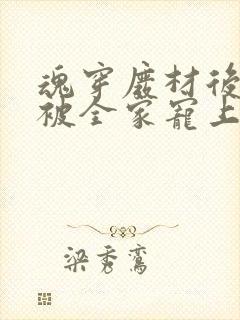 魂穿废材後
被全家寵上
梁秀鸞